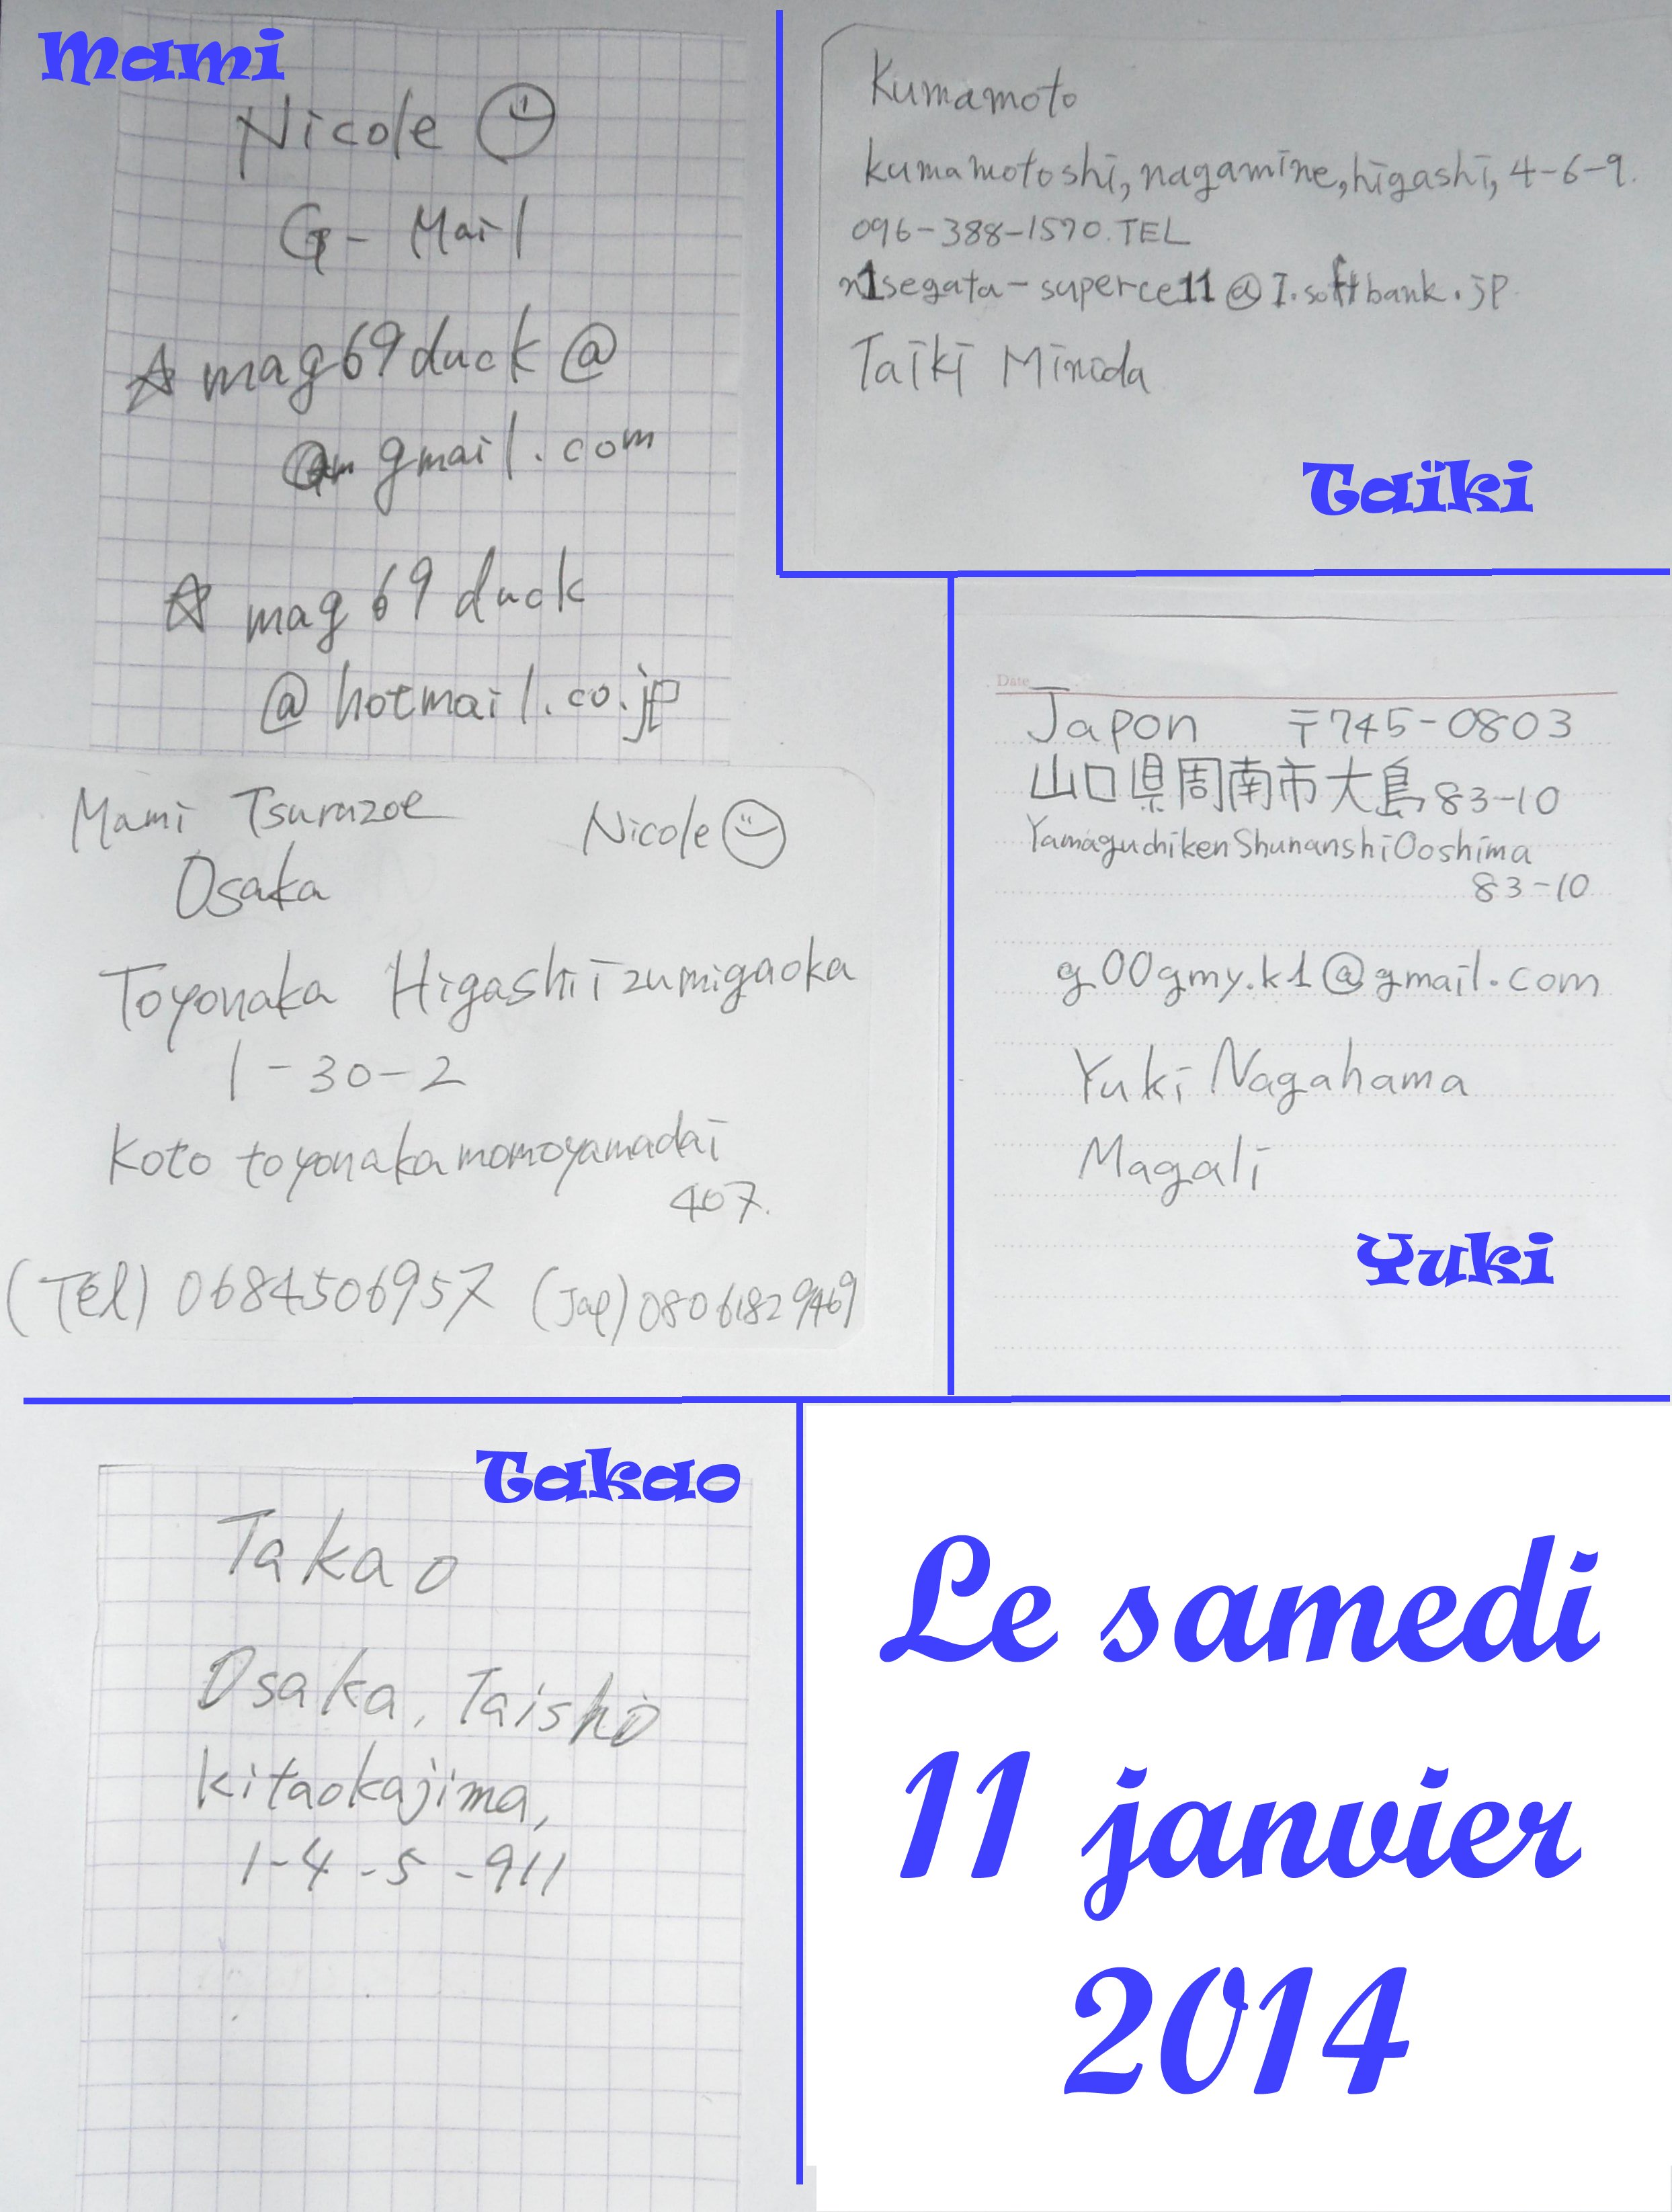 Mami
Nicole
G-Mail
☆ mag69duck@
@ gmail.com
☆ mag69duck
@hotmail.co.jp
Mami Tsuruzoe Nicole
Osaka
Toyonaka Higashiizumigaoka
1-30-2
Koto toyonakamomoyamadai
407.
(Tel) 0684506957 (Jap) 08061829469
Kumamoto
kumamotoshi, nagamine, higashi, 4-6-9.
096-388-1570.TEL
n1segata-superce11@I.softbank.jp
Taiki
Taïki
Date
Japon 〒745-0803
山口県周南市大島83-10
YamaguchikenShunanshiOoshima
83-10
g00gmy.k1@gmail.com
Yuki Nagahama
Magali
Yuki
Takao
Takao
Osaka, Taisho
kitaokajima,
1-4-5-911
Le samedi
11 janvier
2014